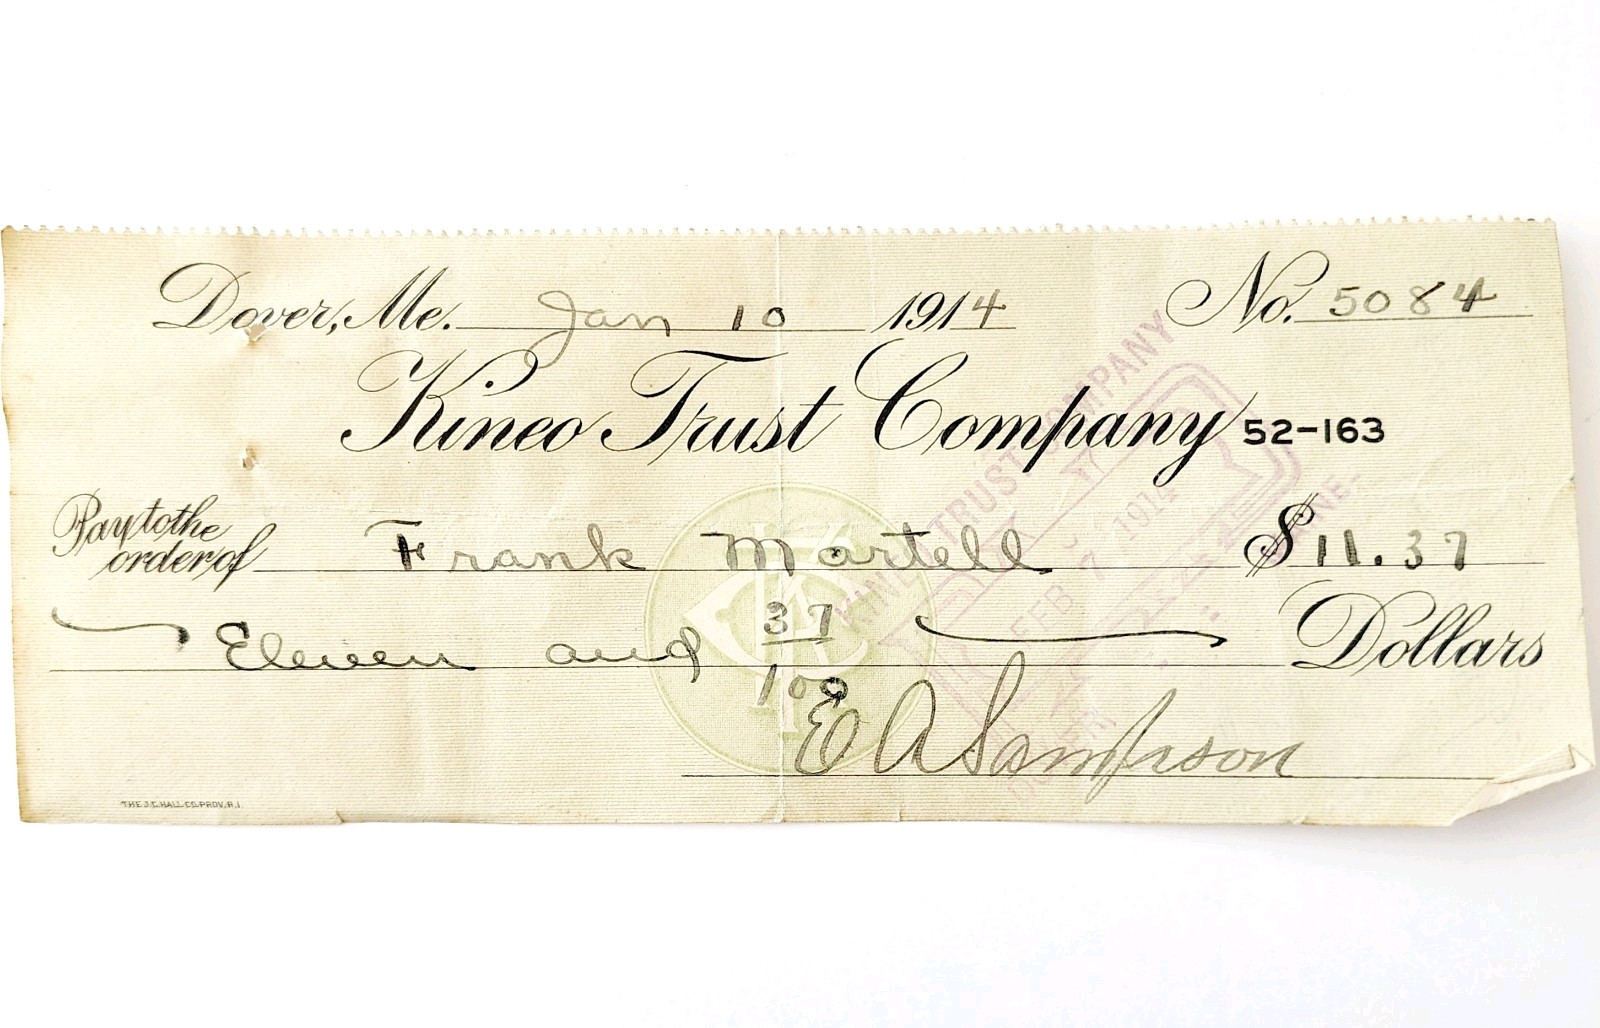 Dover, Me. Jan 10 1914 No. 5084
Kineo Trust Company 52-163
Pay to the
order of Frank Martell $ 11.37
Eleven and 37/100 Dollars
E A Sampson
THE J.C. HALL CO. PROV. R.I.
KINEO TRUST COMPANY
FEB 7 1914